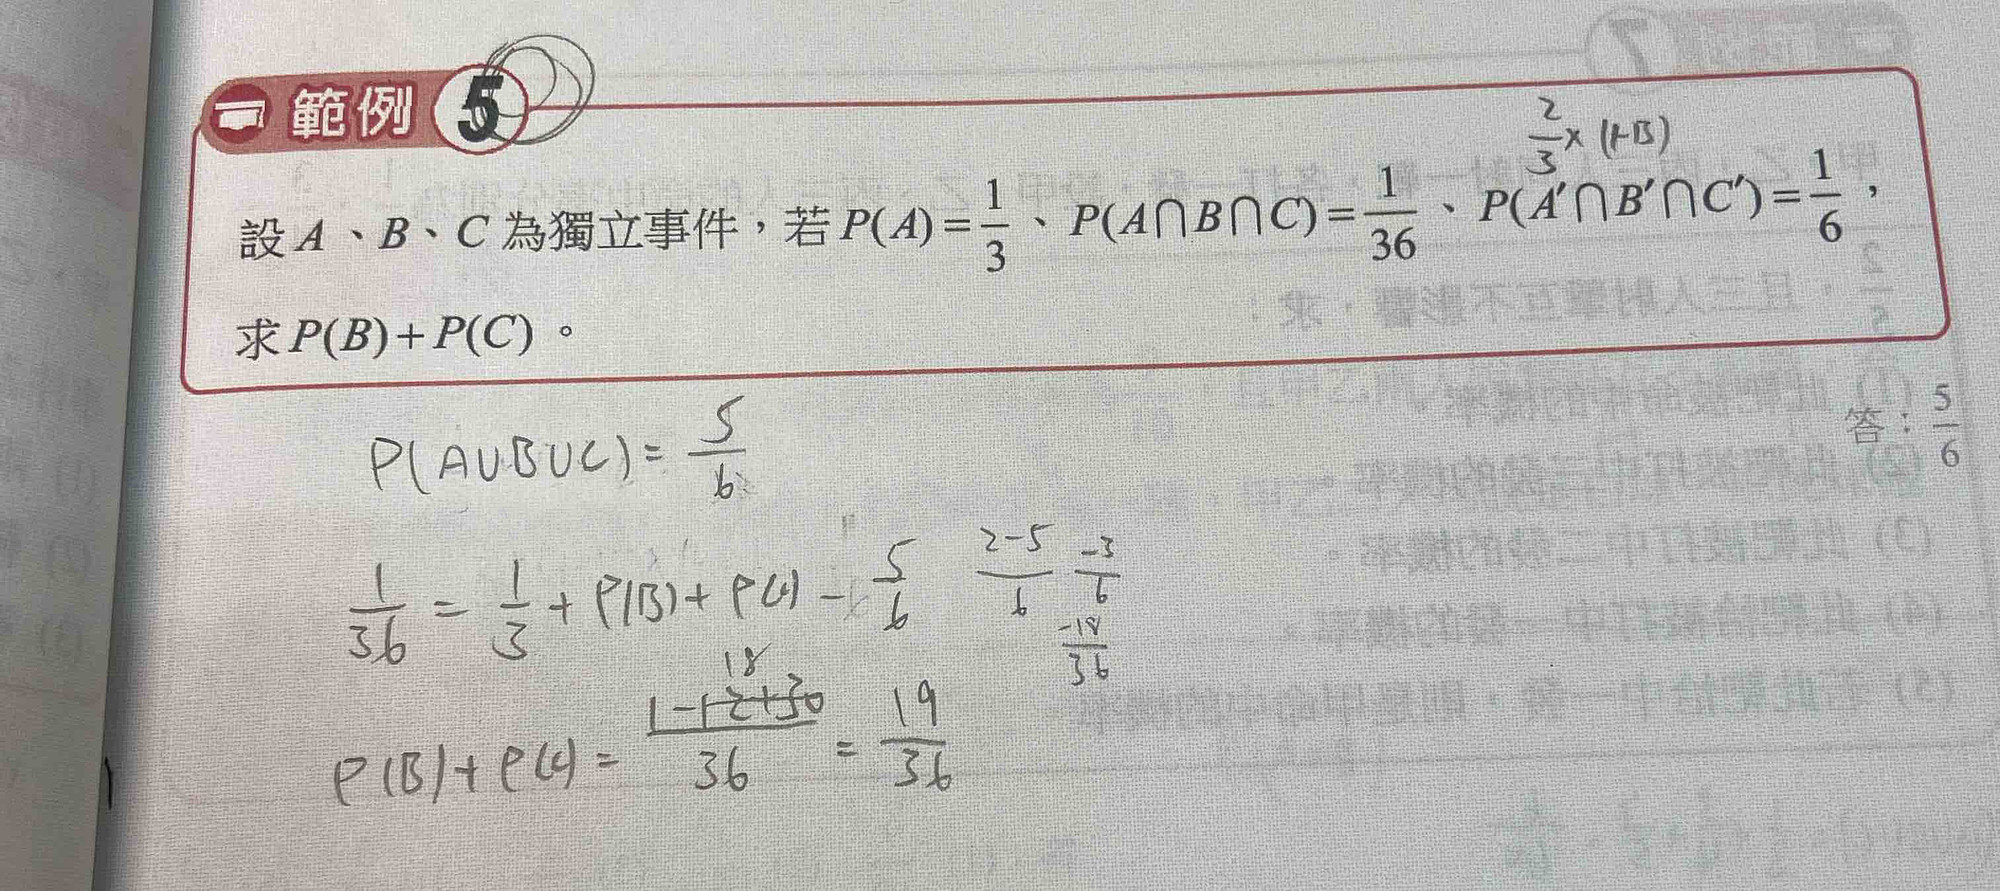 範例 5
2/3 × (1-B)
設 A、B、C 為獨立事件,若 P(A)=1/3、P(A∩B∩C)=1/36、P(A′∩B′∩C′)=1/6,
求 P(B)+P(C)。
答:5/6
P(A∪B∪C)= 5/6
1/36 = 1/3 + P(B)+ P(C) - 5/6
2-5/6 -3/6
-18/36
18
P(B)+P(C)= 1-12+30/36 = 19/36